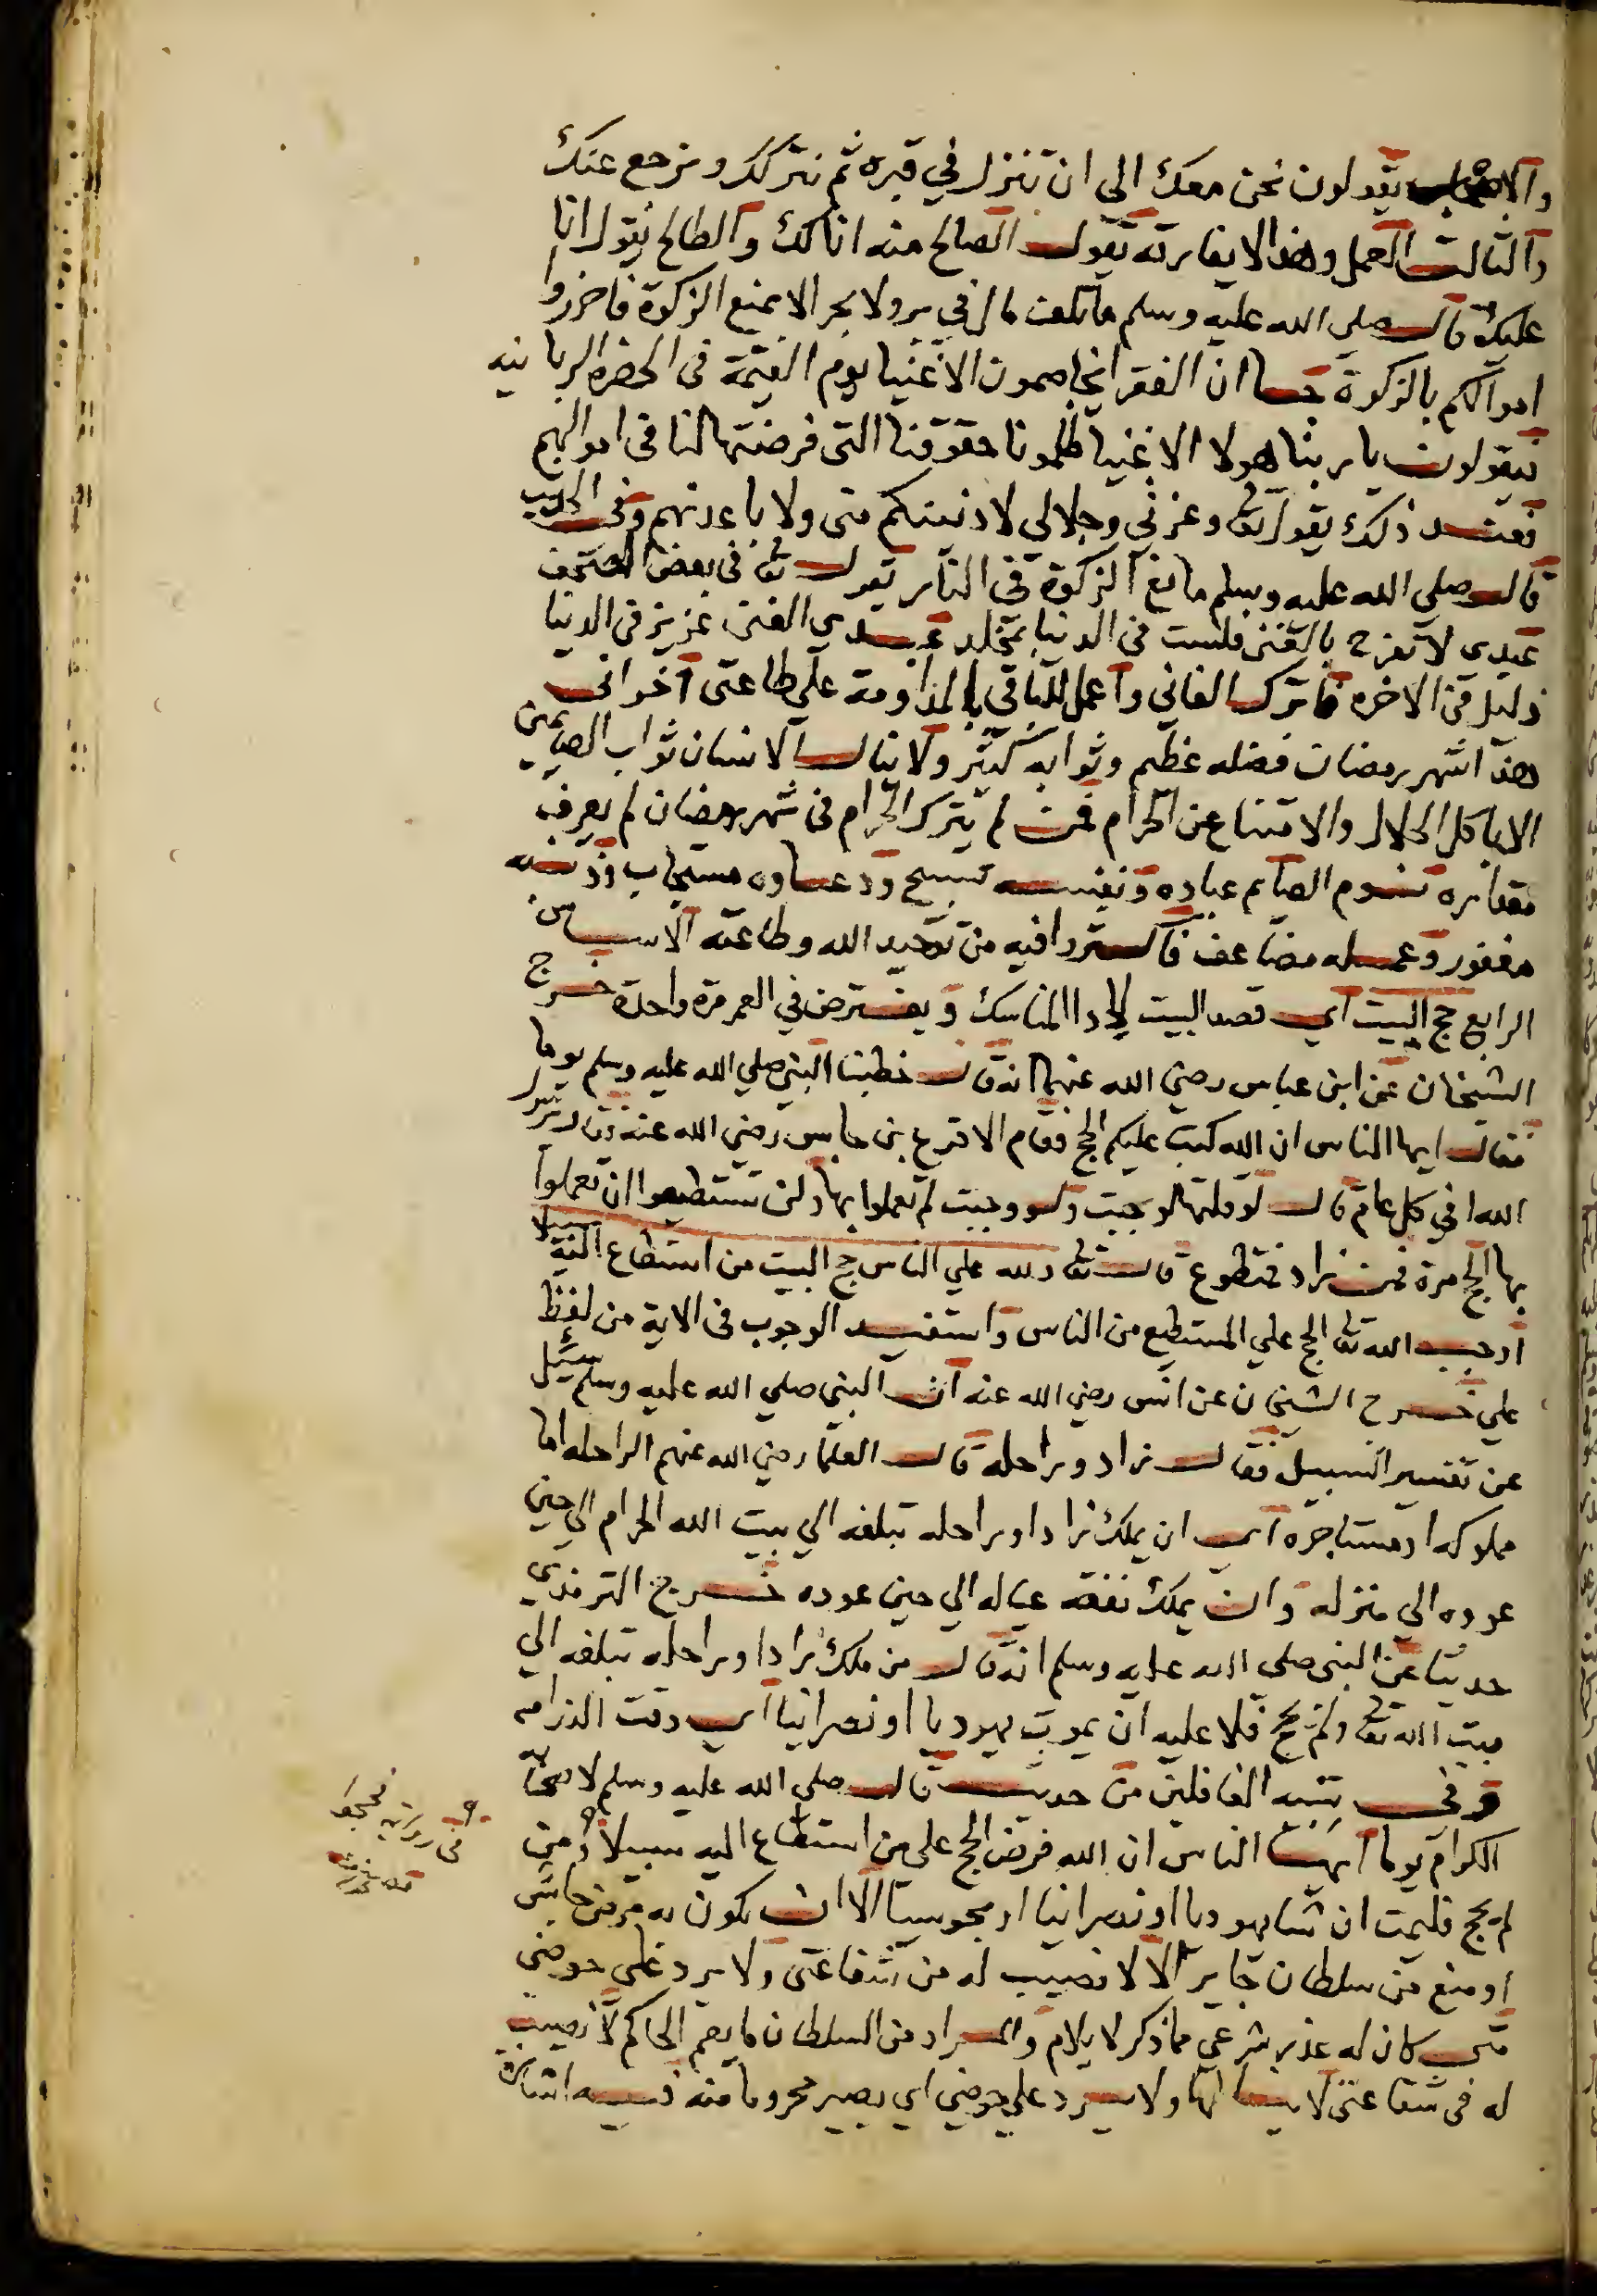 والاصحاب يقولون نحن معك الى ان تنزل في قبره ثم نتركك ونرجع عنك
والثالث العمل وهذا لا يفارقه يقول الصالح منه انا لك والطالح يقول انا
عليك قال صلى الله عليه وسلم ما تلف مال في بر ولا بحر الا بمنع الزكوة فاحرزوا
اموالكم بالزكوة جا ان الفقرا يخاصمون الاغنيا يوم القيمة في الحضرة الربانيه
فيقولون يا ربنا هولا الاغنيا ظلمونا حقوقنا التي فرضتها لنا في اموالهم
فعند ذلك يقول تعا وعزتي وجلالي لادنينكم مني ولا باعدنهم وفي الحديث
قال صلى الله عليه وسلم مانع الزكوة في النار يقول تعا في بعض الصحف
عبدى لا تفرح بالغنى فلست في الدنيا بمخلد عبدي الغنى عزيز في الدنيا
ذليل في الاخره فاترك الفاني واعمل للباقي بالمداومة على طاعتى اخواني
هذا شهر رمضان فضله عظيم وثوابه كثير ولا ينال الانسان ثواب الصايمين
الا باكل الحلال والامتناع عن الحرام فمن لم يترك الحرام في شهر رمضان لم يعرف
مقداره نوم الصايم عباده ونفسه تسبيح ودعاوه مستجاب وذنبه
مغفور وعمله مضاعف فاكستردا فيه من توحيد الله وطاعته الاساس
الرابع حج البيت اي قصد البيت لادا المناسك ويفترض في العمر مرة واحدة خرج
الشيخان عن ابن عباس رضي الله عنهما انه قال خطبنا النبي صلى الله عليه وسلم يوما
فقال ايها الناس ان الله كتب عليكم الحج فقام الاقرع بن حابس رضي الله عنه فقال يرسول
الله افي كل عام قال لو قلتها لوجبت ولو وجبت لم تعملوا بها ولن تستطيعوا ان تعملوا
بها الحج مرة فمن زاد فتطوع قال تعا ولله على الناس حج البيت من استطاع اليه سبيلا
اوجب الله تعا الحج على المستطيع من الناس واستفيد الوجوب في الاية من لفظ
على خرج الشيخان عن انس رضي الله عنه ان النبي صلى الله عليه وسلم سئل
عن تفسير السبيل فقال زاد وراحلة قال العلما رضي الله عنهم الراحله اما
مملوكه او مستاجره اي ان يملك زادا وراحله تبلغه الي بيت الله الحرام الي حين
عوده الي منزله وان يملك نفقه عياله الي حين عوده خرج الترمذي
حديثا عن النبي صلى الله عليه وسلم انه قال من ملك زادا وراحله تبلغه الي
بيت الله تعا ولم يحج فلا عليه ان يموت يهوديا او نصرانيا اي وقت النزامه
وفي تنبيه الغافلين من حديث قال صلى الله عليه وسلم لاصحابه
الكرام يوما ايها الناس ان الله فرض الحج على من استطاع اليه سبيلا ومن
لم يحج فليمت ان شا يهوديا او نصرانيا او مجوسيا الا ان يكون به مرض حابس
او منع من سلطان جاير الا لا نصيب له من شفاعتى ولا يرد على حوضي
متى كان له عذر شرعي مما ذكر لا يلام والمراد من السلطان ما يعم الحاكم لا نصيب
له في شفاعتى لا ينالها ولا يرد على حوضي اي يصير محروما منه فيه اشاره
في رواية فحجوا